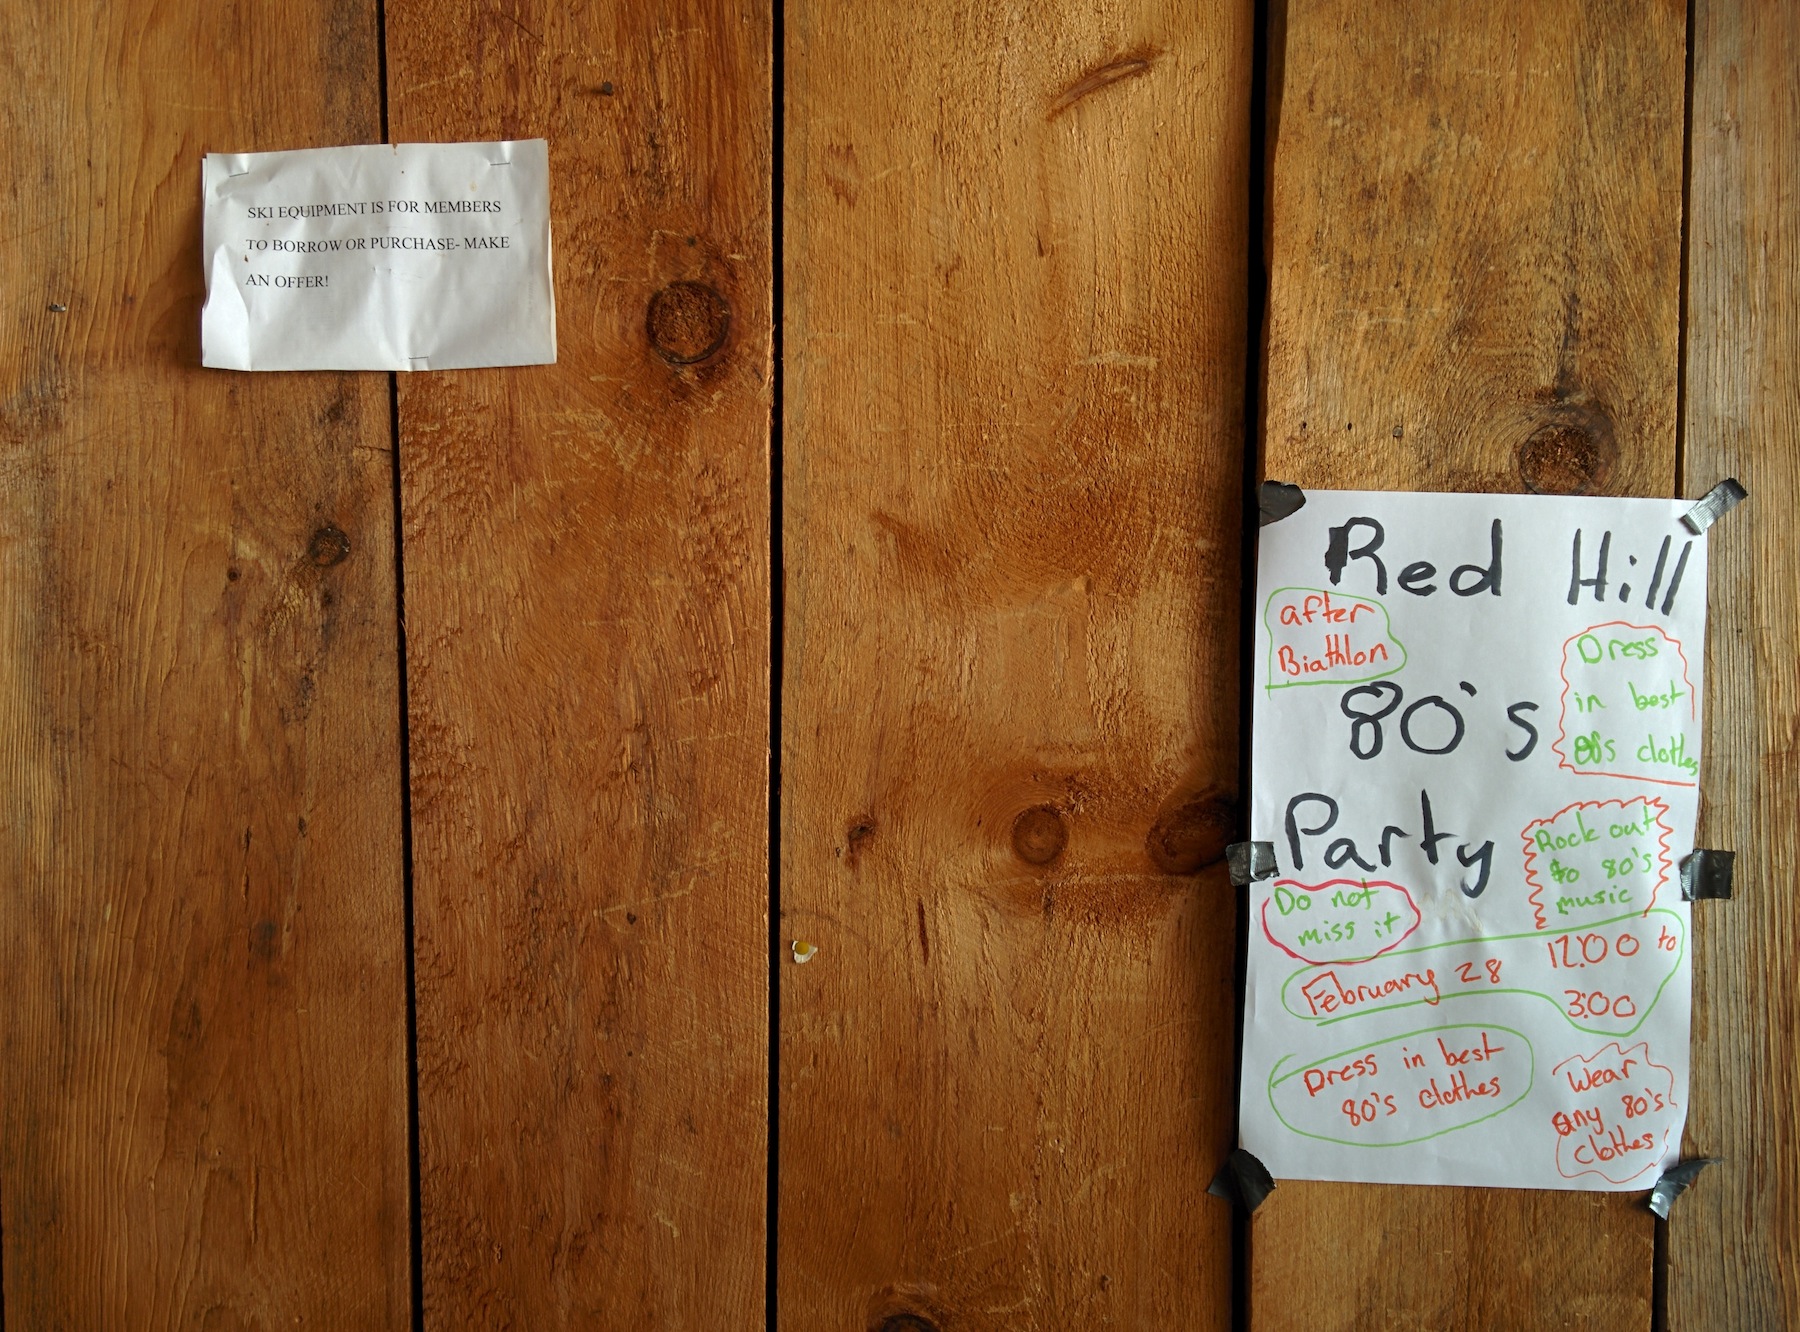 SKI EQUIPMENT IS FOR MEMBERS
TO BORROW OR PURCHASE- MAKE
AN OFFER!
Red Hill
after
Biathlon
80's
Dress
in best
80's clothes
Party
Rock out
to 80's
music
Do not
miss it
February 28
12:00 to
3:00
Dress in best
80's clothes
Wear
any 80's
clothes